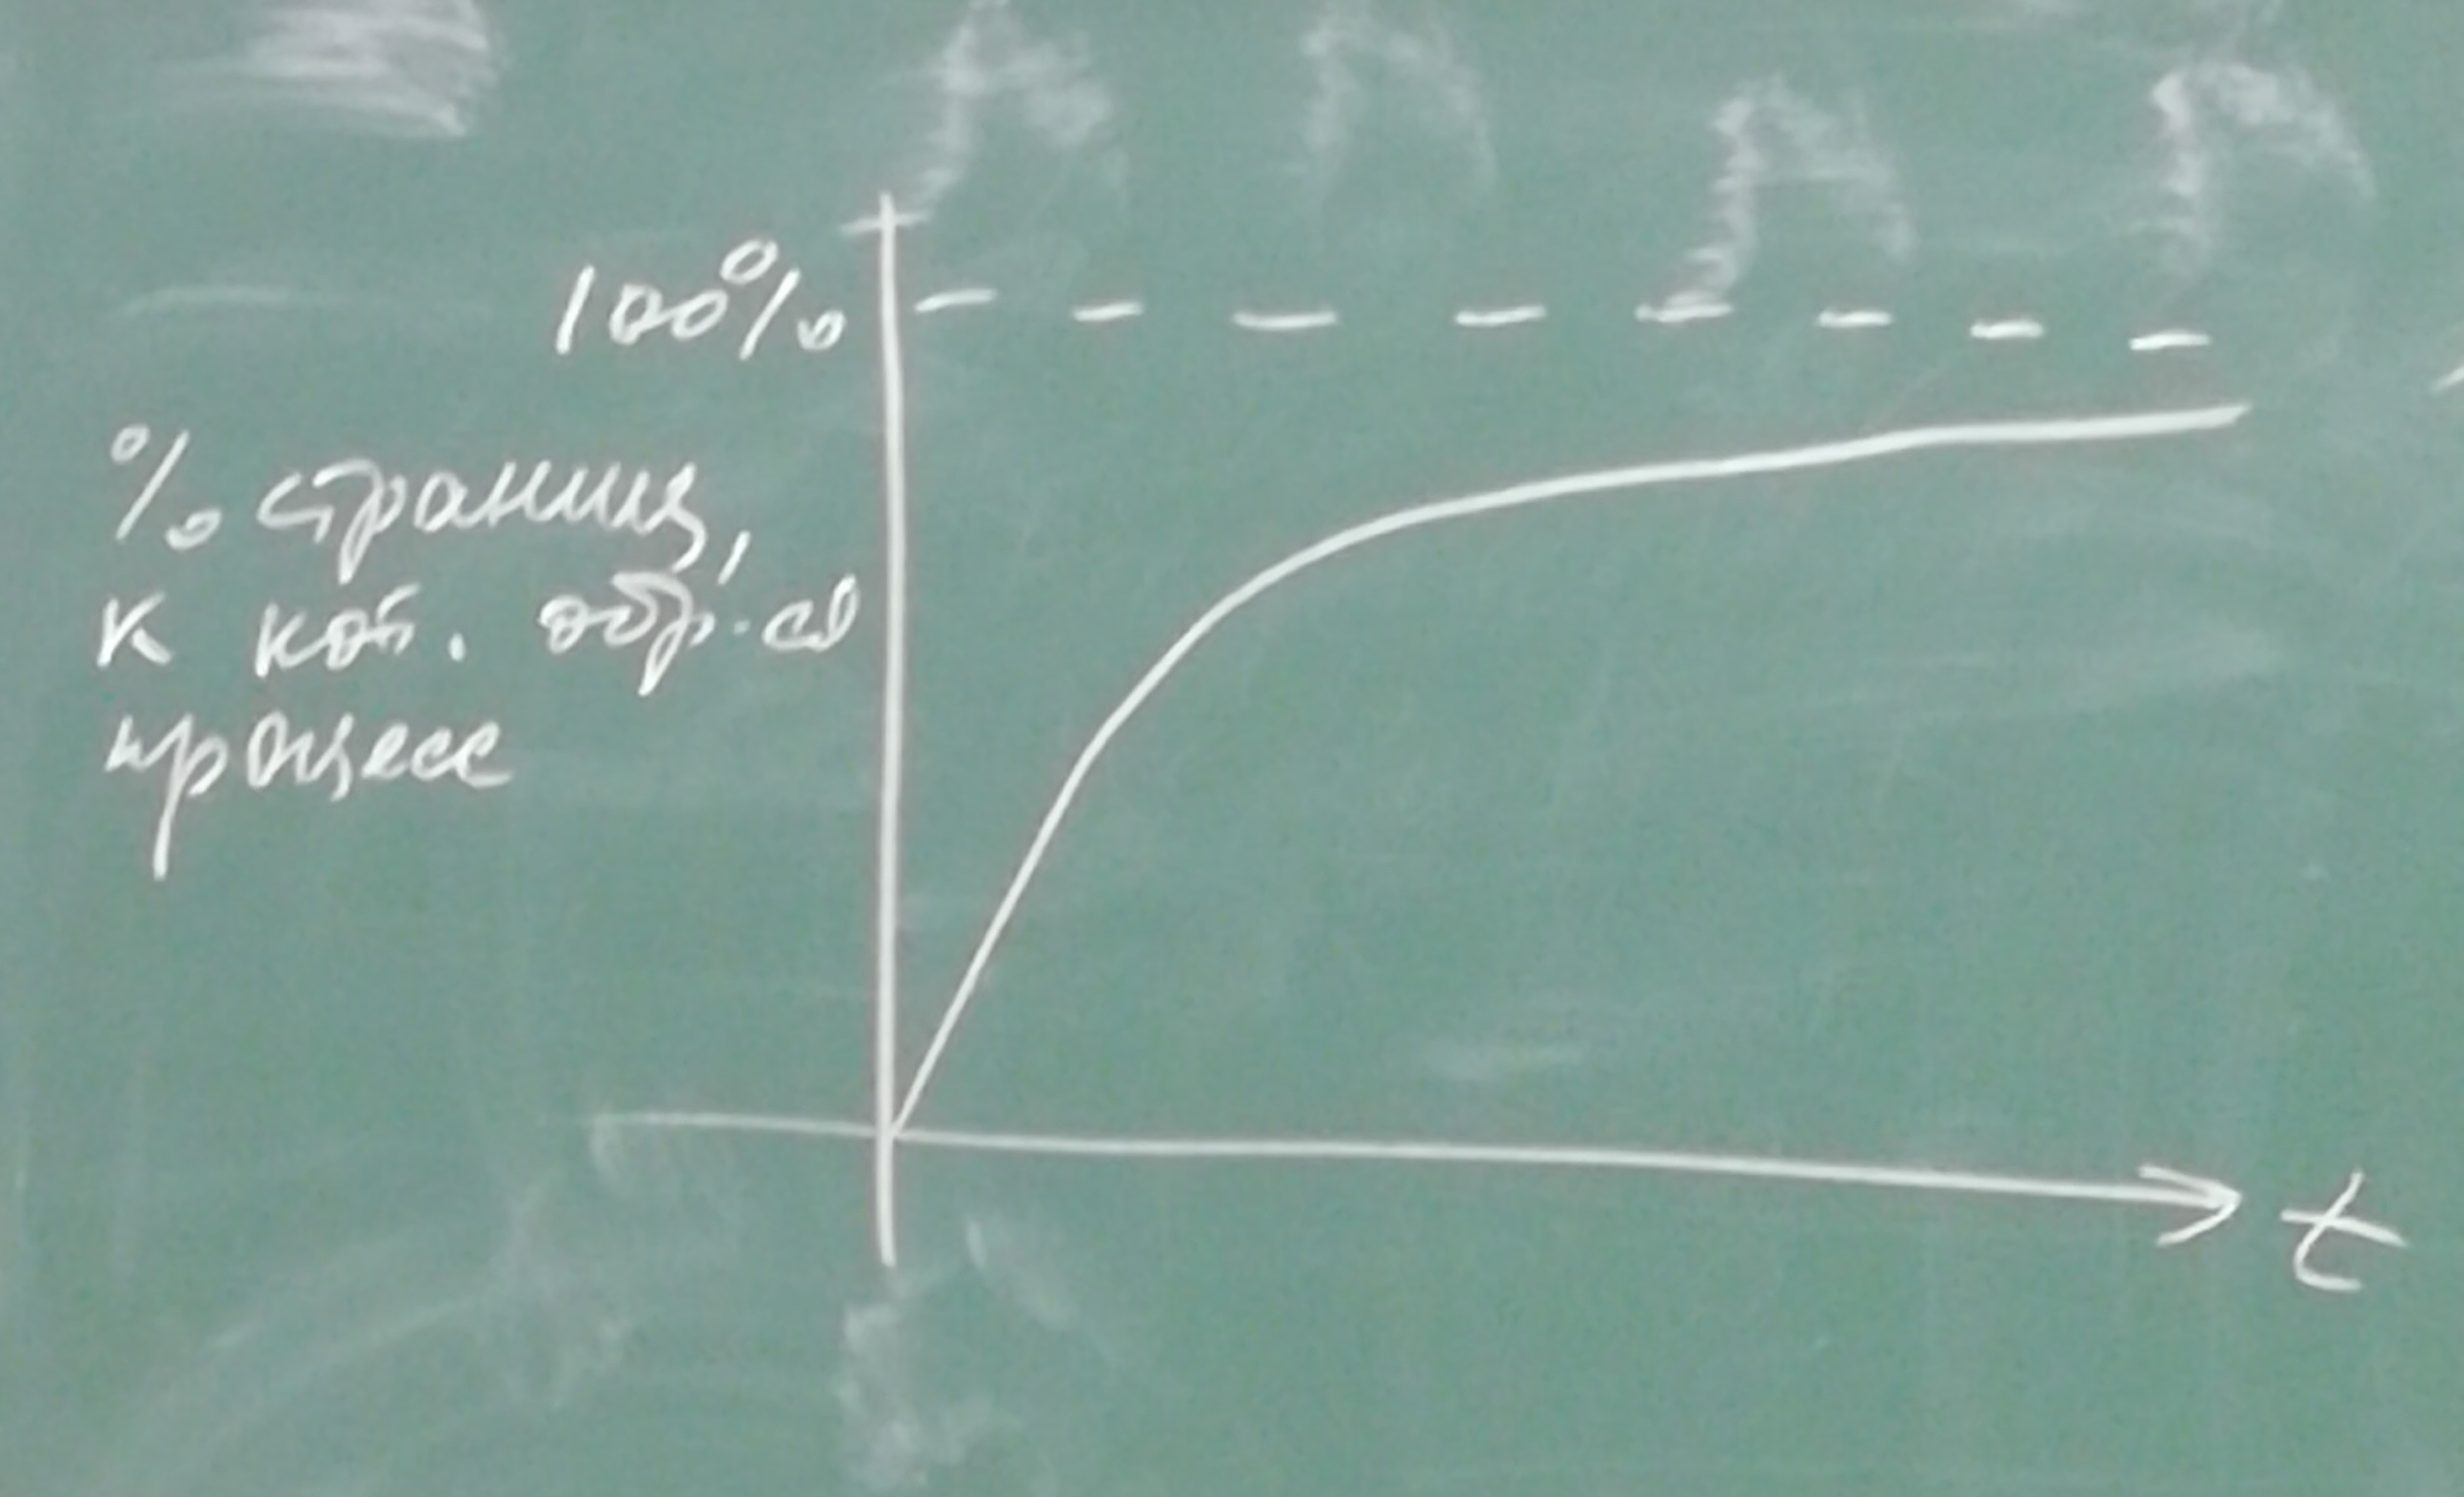 100%
% страниц,
к кот. обр-ся
процесс
t